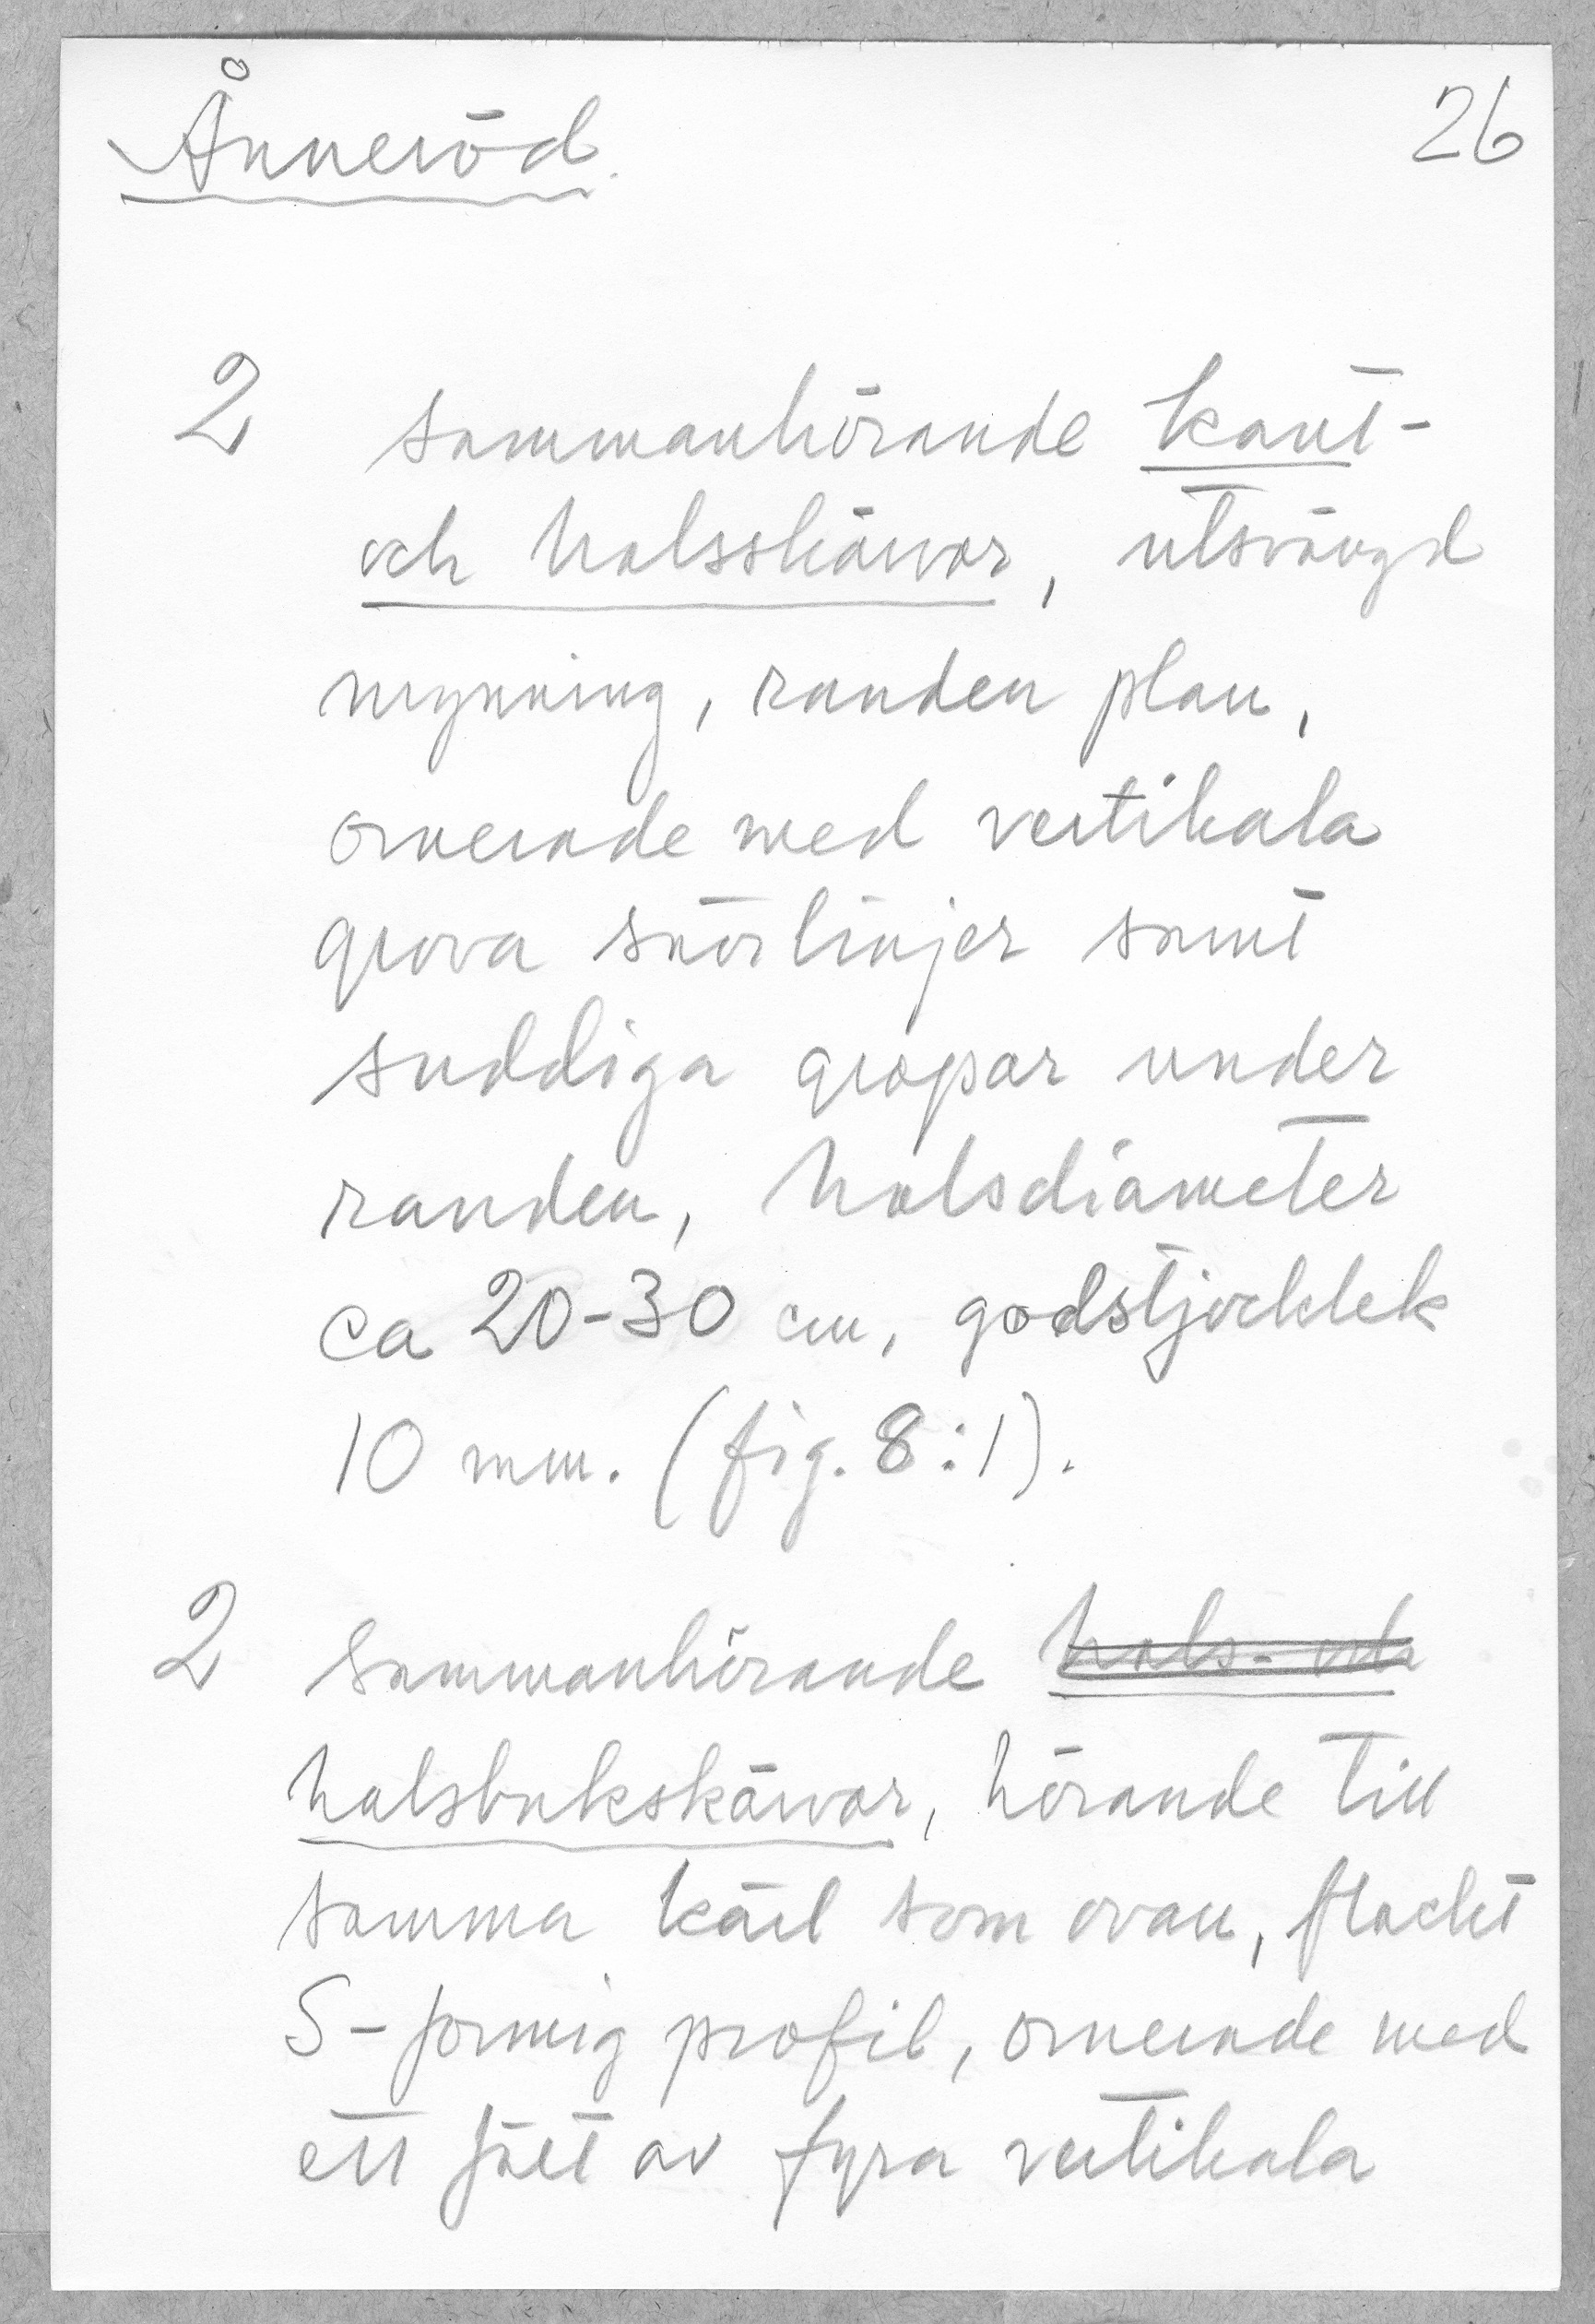 Ånneröd.
26
2 sammanhörande kant-
och halsskärvor, utsvängd
mynning, randen plan,
ornerade med vertikala
grova snörlinjer samt
suddiga gropar under
randen, halsdiameter
ca 20-30 cm, godstjocklek
10 mm. (fig. 8:1).
2 sammanhörande hals- och
halsbukskärvor, hörande till
samma kärl som ovan, flackt
S-formig profil, ornerade med
ett fält av fyra vertikala